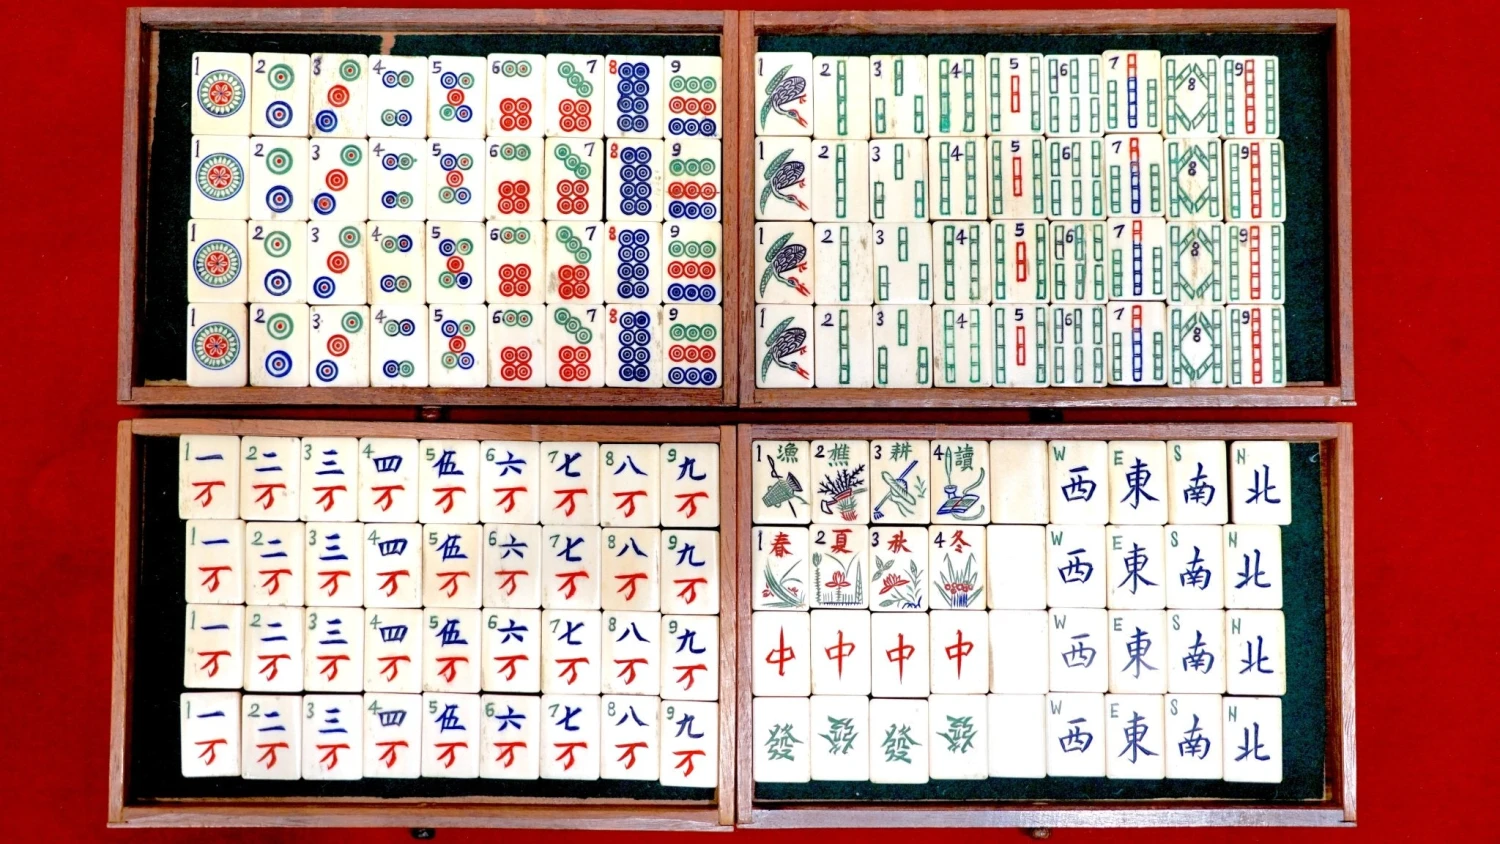 1 2 3 4 5 6 7 8 9
1 2 3 4 5 6 7 8 9
1 2 3 4 5 6 7 8 9
1 2 3 4 5 6 7 8 9
1 2 3 4 5 6 7 8 9
1 2 3 4 5 6 7 8 9
1 2 3 4 5 6 7 8 9
1 2 3 4 5 6 7 8 9
1 一 2 二 3 三 4 四 5 伍 6 六 7 七 8 八 9 九
万 万 万 万 万 万 万 万 万
1 一 2 二 3 三 4 四 5 伍 6 六 7 七 8 八 9 九
万 万 万 万 万 万 万 万 万
1 一 2 二 3 三 4 四 5 伍 6 六 7 七 8 八 9 九
万 万 万 万 万 万 万 万 万
1 一 2 二 3 三 4 四 5 伍 6 六 7 七 8 八 9 九
万 万 万 万 万 万 万 万 万
1 漁 2 樵 3 耕 4 讀 W 西 E 東 S 南 N 北
1 春 2 夏 3 秋 4 冬 W 西 E 東 S 南 N 北
中 中 中 中 W 西 E 東 S 南 N 北
發 發 發 發 W 西 E 東 S 南 N 北